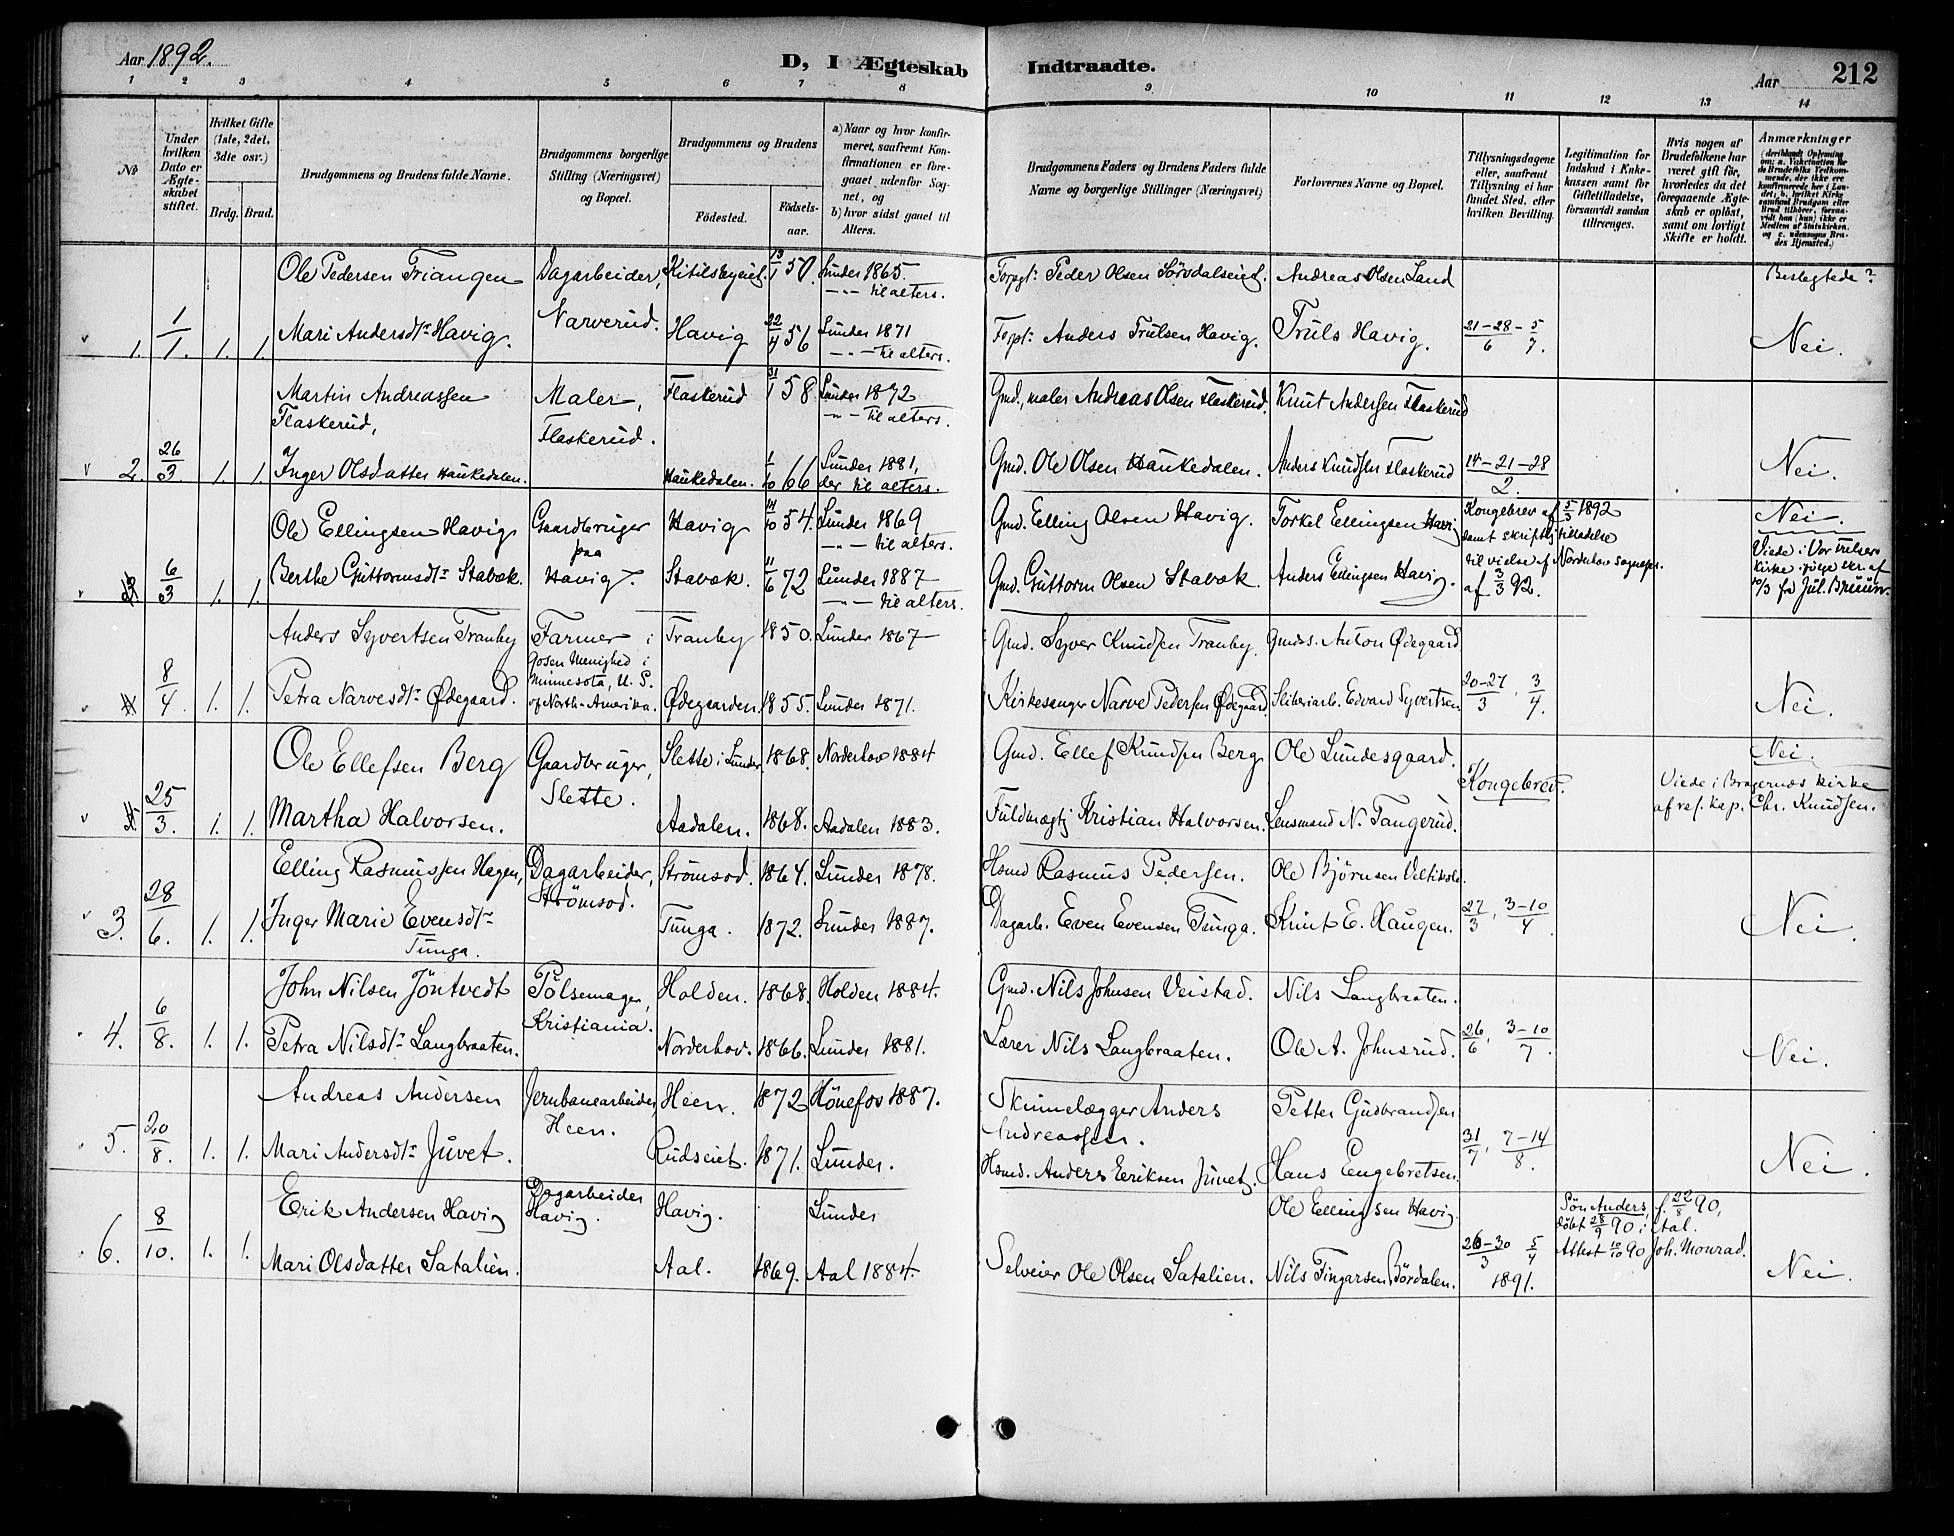 Aar 1892.
D, I Ægteskab Indtraadte.
Aar 212
1 2 3 4 5 6 7 8 9 10 11 12 13 14
No
Under hvilken Dato er Ægteskabet stiftet.
Hvilket Gifte (1ste, 2det, 3die osv.)
Brdg. Brud.
Brudgommens og Brudens fulde Navne.
Brudgommens borgerlige Stilling (Næringsvei) og Bopæl.
Brudgommens og Brudens
Födested. Födselsaar.
a) Naar og hvor konfirmeret, saafremt Konfirmationen er foregaaet udenfor Sognet, og
b) hvor sidst gaaet til Alters.
Brudgommens Faders og Brudens Faders fulde Navne og borgerlige Stillinger (Næringsvei)
Forlovernes Navne og Bopæl.
Tillysningsdagene eller, saafremt Tillysning ei har fundet Sted, efter hvilken Bevilling.
Legitimation for Indskud i Enkekassen samt for Giftetilladelse, forsaavidt saadan tiltrænges.
Hvis nogen af Brudefolkene har været gift för, hvorledes da det foregaaende Ægteskab er oplöst, samt om lovligt Skifte er holdt.
Anmærkninger
Ole Pedersen Triangen Dagarbeider, Kitilsbyeiet. 13/1 50. Lunder 1865. Torpgt: Peder Olsen Sörvdalseiet. Andreas Olsen Land Beslegtede?
Narverud. —"— til alters.
1. 1/1. 1. 1. Mari Andersdtr Havig. Havig 22/4 56 Lunder 1871 Forpt: Anders Trulsen Havig. Truls Havig. 21-28/6 - 5/7. Nei.
—"— til alters.
Martin Andreassen Maler, Flaskerud 31/1 58. Lunder 1872 Gmd., maler Andreas Olsen Flaskerud. Knut Andersen Flaskerud
Flaskerud, Flaskerud. —"— til alters.
2. 26/3. 1. 1. Inger Olsdatter Haukedalen. Haukedalen. 1/10 66 Lunder 1881, Gmd. Ole Olsen Haukedalen. Anders Knudsen Flaskerud 14-21-28/2. Nei.
der til alters.
Ole Ellingsen Havig Gaardbruger Havig 14/10 54. Lunder 1869 Gmd. Elling Olsen Havig. Torkel Ellingsen Havig Kongebrev af 5/3 1892 Nei.
paa —"— til alters. samt skriftlig tilladelse Viede i Vor Frelsers
6/3 1. 1. Berthe Guttormsdtr Stavæk. Havig. Stavæk. 11/6 72 Lunder 1887 Gmd. Guttorm Olsen Stavæk. Anders Ellingsen Havig. til vielse af Norderhov sognepr. Kirke ifölge skr. af
—"— til alters. af 3/3 92. 10/3 fra Jul. Bruun.
Anders Syvertsen Tranby Farmer i Tranby 1850. Lunder 1867 Gmd. Syver Knudsen Tranby. Gmdss. Anton Ødegaard
Gosen Menighed i
Minnesota, U. S.
8/4. 1. 1. Petra Narvesdtr Ødegaard. of North-Amerika. Ødegaarden. 1855. Lunder 1871. Kirkesanger Narve Pedersen Ødegaard. Sliberiarb. Edvard Syvertsen 20-27/3, 3/4. Nei.
Ole Ellefsen Berg Gaardbruger, Slette i Lunder 1868. Norderhov 1884 Gmd. Ellef Knudsen Berg Ole Lundesgaard. Nei.
Slette. Kongebrev. Viede i Bragernæs kirke
25/3. 1. 1. Martha Halvorsen. Aadalen. 1868. Aadalen 1883. Fuldmægtig Kristian Halvorsen. Lensmand N. Tangerud. af res. kap. Chr. Knudsen.
Elling Rasmussen Hagen, Dagarbeider, Strömsod. 1864. Lunder 1878. Hsmd Rasmus Pedersen. Ole Björnsen
Strömsod.
3. 28/6. 1. 1. Inger Marie Evensdtr Tunga. 1872. Lunder 1887. Dagarb. Even Evensen Tunga. Knut E. Haugen. 27/3, 3-10/4. Nei.
Tunga.
John Nilsen Jöntvedt Pölsemager, Holden. 1868. Holden 1884. Gmd. Nils Johnsen Veistad. Nils Langbraaten.
Kristiania.
4. 6/8. 1. 1. Petra Nilsdtr Langbraaten. Norderhov. 1866. Lunder 1881. Lærer Nils Langbraaten. Ole A. Johnsrud. 26/6, 3-10/7. Nei.
Andreas Andersen Jernbanearbeider Heen. 1872 Hönefos 1887. Skinnelægger Anders Petter Gudbrandsen
Heen. Andreassen.
5. 20/8. 1. 1. Mari Andersdtr Juvet. Rudseiet. 1871. Lunder. Hsmd. Anders Eeriksen Juvet. Hans Engebretsen. 31/7, 7-14/8. Nei.
Erik Andersen Havig Dagarbeider Havig. Lunder Ole Ellingsen Havig Sön Anders, f. 22/8 90,
Havig. döbt 28/9 90 i Aal.
6. 8/10. 1. 1. Mari Olsdatter Satalien. Aal. 1869. Aal 1884. Selveier Ole Olsen Satalien. Nils Fingarsen Bördalen. 26-30/3 5/4 1891. Attest 10/10 90 Joh. Monrad. Nei.